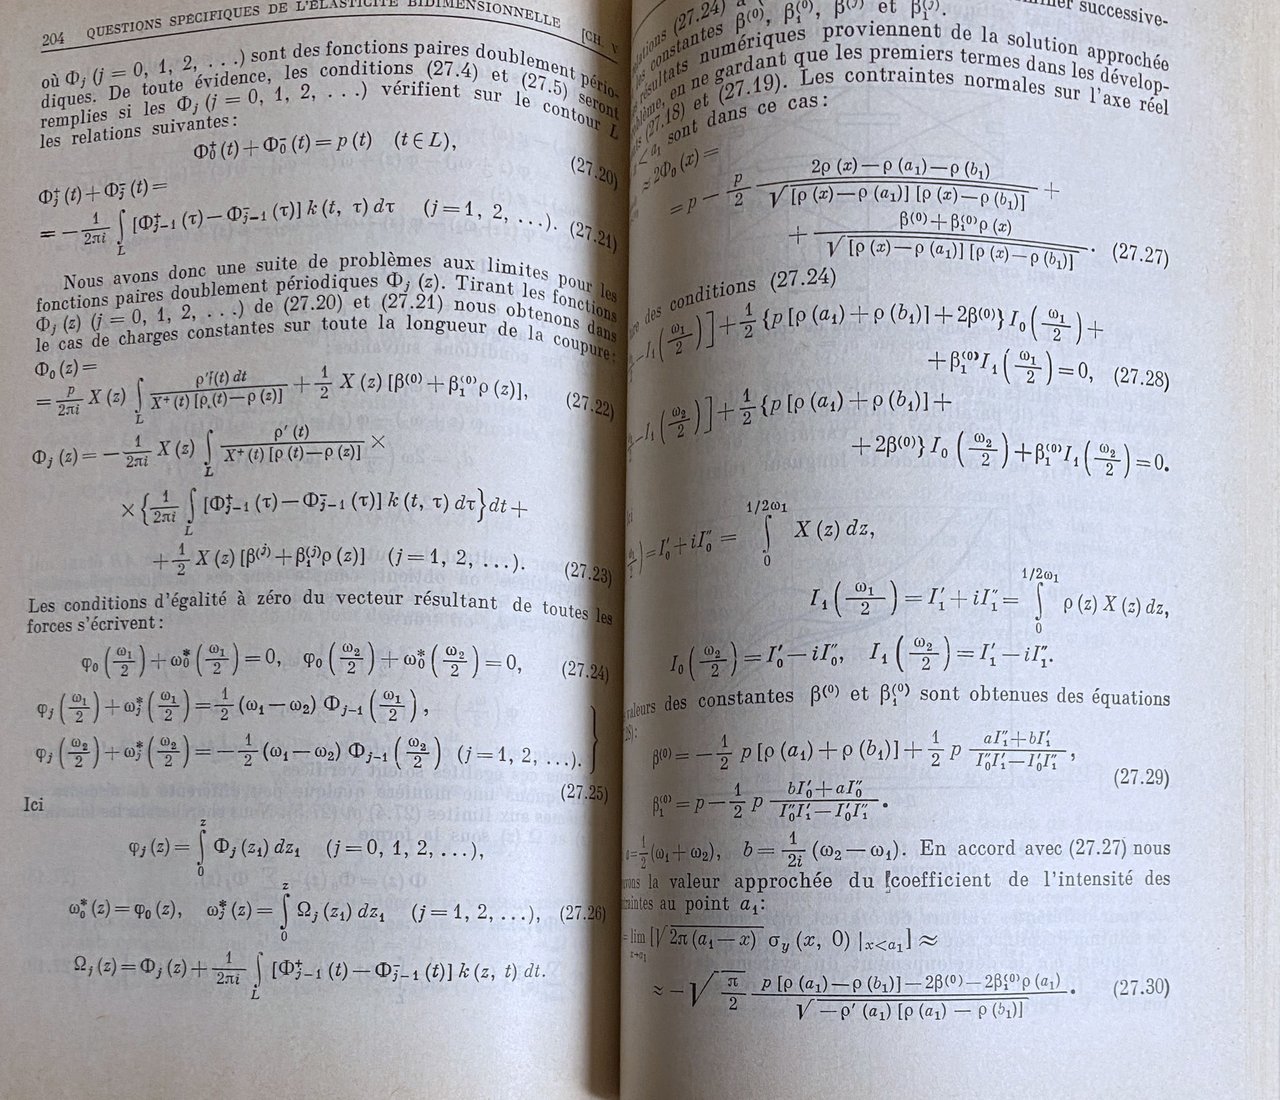 204 QUESTIONS SPÉCIFIQUES DE L'ÉLASTICITÉ BIDIMENSIONNELLE [CH. V
où Φⱼ (j = 0, 1, 2, . . .) sont des fonctions paires doublement pério-
diques. De toute évidence, les conditions (27.4) et (27.5) seront
remplies si les Φⱼ (j = 0, 1, 2, . . .) vérifient sur le contour L
les relations suivantes:
Φ₀⁺ (t) + Φ₀⁻ (t) = p (t) (t ∈ L), (27.20)
Φⱼ⁺ (t) + Φⱼ⁻ (t) =
= − 1/2πi ∫_L [Φ⁺ⱼ₋₁ (τ) − Φ⁻ⱼ₋₁ (τ)] k (t, τ) dτ (j = 1, 2, ...). (27.21)
Nous avons donc une suite de problèmes aux limites pour les
fonctions paires doublement périodiques Φⱼ (z). Tirant les fonctions
Φⱼ (z) (j = 0, 1, 2, . . .) de (27.20) et (27.21) nous obtenons dans
le cas de charges constantes sur toute la longueur de la coupure:
Φ₀ (z) =
= p/2πi X (z) ∫_L ρ′(t) dt / X⁺ (t) [ρ (t) − ρ (z)] + 1/2 X (z) [β⁽⁰⁾ + β₁⁽⁰⁾ρ (z)], (27.22)
Φⱼ (z) = − 1/2πi X (z) ∫_L ρ′ (t) / X⁺ (t) [ρ (t) − ρ (z)] ×
× {1/2πi ∫_L [Φ⁺ⱼ₋₁ (τ) − Φ⁻ⱼ₋₁ (τ)] k (t, τ) dτ} dt +
+ 1/2 X (z) [β⁽ʲ⁾ + β₁⁽ʲ⁾ρ (z)] (j = 1, 2, ...). (27.23)
Les conditions d'égalité à zéro du vecteur résultant de toutes les
forces s'écrivent:
φ₀ (ω₁/2) + ω₀* (ω₁/2) = 0, φ₀ (ω₂/2) + ω₀* (ω₂/2) = 0, (27.24)
φⱼ (ω₁/2) + ωⱼ* (ω₁/2) = 1/2 (ω₁ − ω₂) Φⱼ₋₁ (ω₁/2),
φⱼ (ω₂/2) + ωⱼ* (ω₂/2) = − 1/2 (ω₁ − ω₂) Φⱼ₋₁ (ω₂/2) (j = 1, 2, ...). }
(27.25)
Ici
φⱼ (z) = ∫₀ᶻ Φⱼ (z₁) dz₁ (j = 0, 1, 2, ...),
ω₀* (z) = φ₀ (z), ωⱼ* (z) = ∫₀ᶻ Ωⱼ (z₁) dz₁ (j = 1, 2, ...), (27.26)
Ωⱼ (z) = Φⱼ (z) + 1/2πi ∫_L [Φ⁺ⱼ₋₁ (t) − Φ⁻ⱼ₋₁ (t)] k (z, t) dt.
successive-
(27.24) constantes β⁽⁰⁾, β₁⁽⁰⁾, β⁽ʲ⁾ et β₁⁽ʲ⁾.
résultats numériques proviennent de la solution approchée
en ne gardant que les premiers termes dans les dévelop-
(27.18) et (27.19). Les contraintes normales sur l'axe réel
x < a₁ sont dans ce cas:
≈ 2Φ₀ (x) =
= p − p/2 2ρ (x) − ρ (a₁) − ρ (b₁) / √[ρ (x) − ρ (a₁)] [ρ (x) − ρ (b₁)] +
+ β⁽⁰⁾ + β₁⁽⁰⁾ρ (x) / √[ρ (x) − ρ (a₁)] [ρ (x) − ρ (b₁)]. (27.27)
des conditions (27.24)
− I₁ (ω₁/2)] + 1/2 {p [ρ (a₁) + ρ (b₁)] + 2β⁽⁰⁾} I₀ (ω₁/2) +
+ β₁⁽⁰⁾I₁ (ω₁/2) = 0, (27.28)
− I₁ (ω₂/2)] + 1/2 {p [ρ (a₁) + ρ (b₁)] +
+ 2β⁽⁰⁾} I₀ (ω₂/2) + β₁⁽⁰⁾I₁ (ω₂/2) = 0.
= I₀′ + iI₀″ = ∫₀^{1/2ω₁} X (z) dz,
I₁ (ω₁/2) = I₁′ + iI₁″ = ∫₀^{1/2ω₁} ρ (z) X (z) dz,
I₀ (ω₂/2) = I₀′ − iI₀″, I₁ (ω₂/2) = I₁′ − iI₁″.
valeurs des constantes β⁽⁰⁾ et β₁⁽⁰⁾ sont obtenues des équations
β⁽⁰⁾ = − 1/2 p [ρ (a₁) + ρ (b₁)] + 1/2 p aI₁″ + bI₁′ / I₀″I₁′ − I₀′I₁″,
(27.29)
β₁⁽⁰⁾ = p − 1/2 p bI₀′ + aI₀″ / I₀″I₁′ − I₀′I₁″.
= 1/2 (ω₁ + ω₂), b = 1/2i (ω₂ − ω₁). En accord avec (27.27) nous
la valeur approchée du coefficient de l'intensité des
au point a₁:
= lim x→a₁ [√2π (a₁ − x) σy (x, 0) |x<a₁] ≈
≈ − √π/2 p [ρ (a₁) − ρ (b₁)] − 2β⁽⁰⁾ − 2β₁⁽⁰⁾ρ (a₁) / √−ρ′ (a₁) [ρ (a₁) − ρ (b₁)]. (27.30)